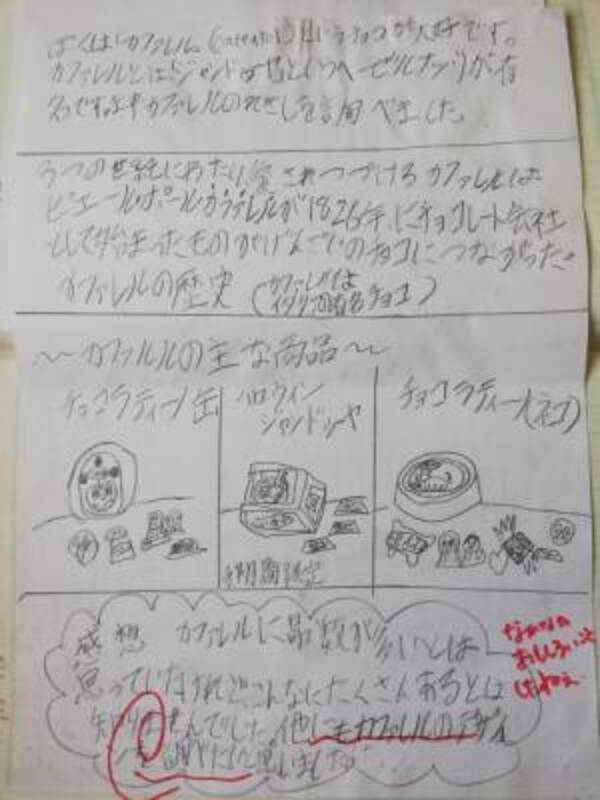 ぼくは「カファレル」(caffarel)というチョコが大好きです。
カファレルとは「ジャンドゥーヤ」というヘーゼルナッツが有
名です。カファレルのれきしを調べました。
うつの世紀にわたり、愛されつづけるカファレルは
ピエール・ポール・カファレルが1826年にチョコレート会社
として始まったものがげんざいのチョコにつながった。
カファレルの歴史 (カファレルは
イタリアの有名チョコ)
~カファレルの主な商品~
チョコラティーノ缶
ハロウィン
ジャンドゥーヤ
チョコラティーノ(ネコ)
期間限定
感想 カファレルに品数が多いとは
思っていたけれど、こんなにたくさんあるとは
知りませんでした。他にもカファレルのデザイ
ンを調べたいと思いました。
なかなか
おもしろいこと